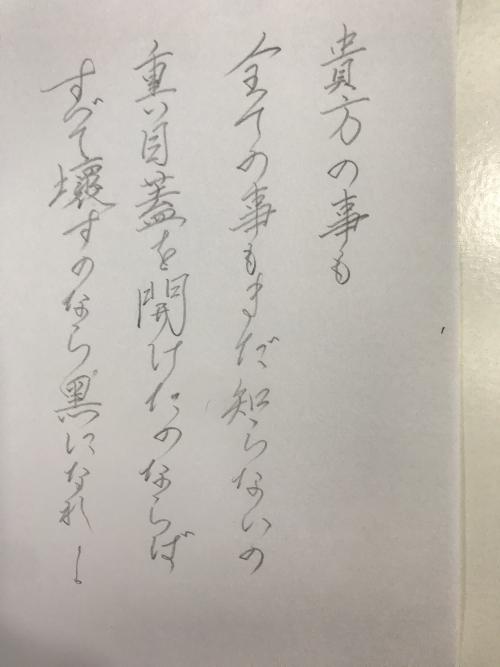 貴方の事も
全ての事もまだ知らないの
重い目蓋を開けたのならば
すべて壊すのなら黒になれ